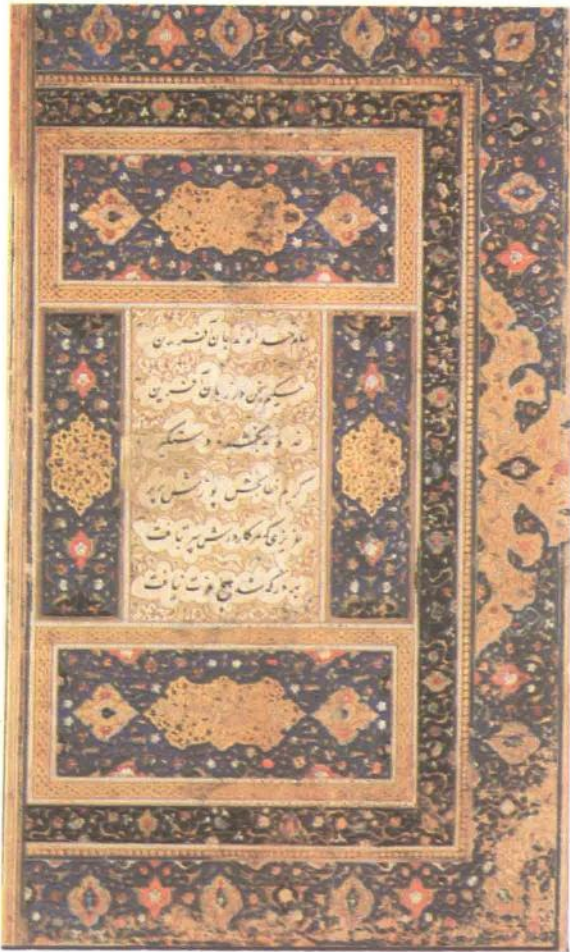 بنام خداوند جان آفرین
حکیم سخن در زبان آفرین
خداوند بخشنده دستگیر
کریم خطابخش پوزش پذیر
عزیزی که هر کز درش سر بتافت
بهر در که شد هیچ عزت نیافت